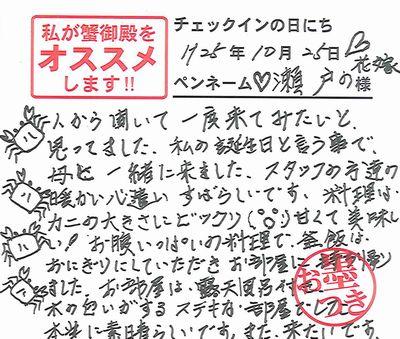 私が蟹御殿を
オススメ
します!!
チェックインの日にち
1925年10月25日
ペンネーム♡瀬戸の花嫁様
人から聞いて一度来てみたいと、
思ってました、私の誕生日と言う事で、
母と一緒に来ました、スタッフの方達の
暖かい心遣いすばらしいです、料理は、
カニの大きさにビックリ(°°)甘くて美味し
い!お腹いっぱいの料理で、釜飯は
おにぎりにしていただきお部屋に
ました、お部屋は、露天風呂付き
木の匂いがするステキな部屋でした
本当に素晴らしいです、また、来たいです。
お墨つき